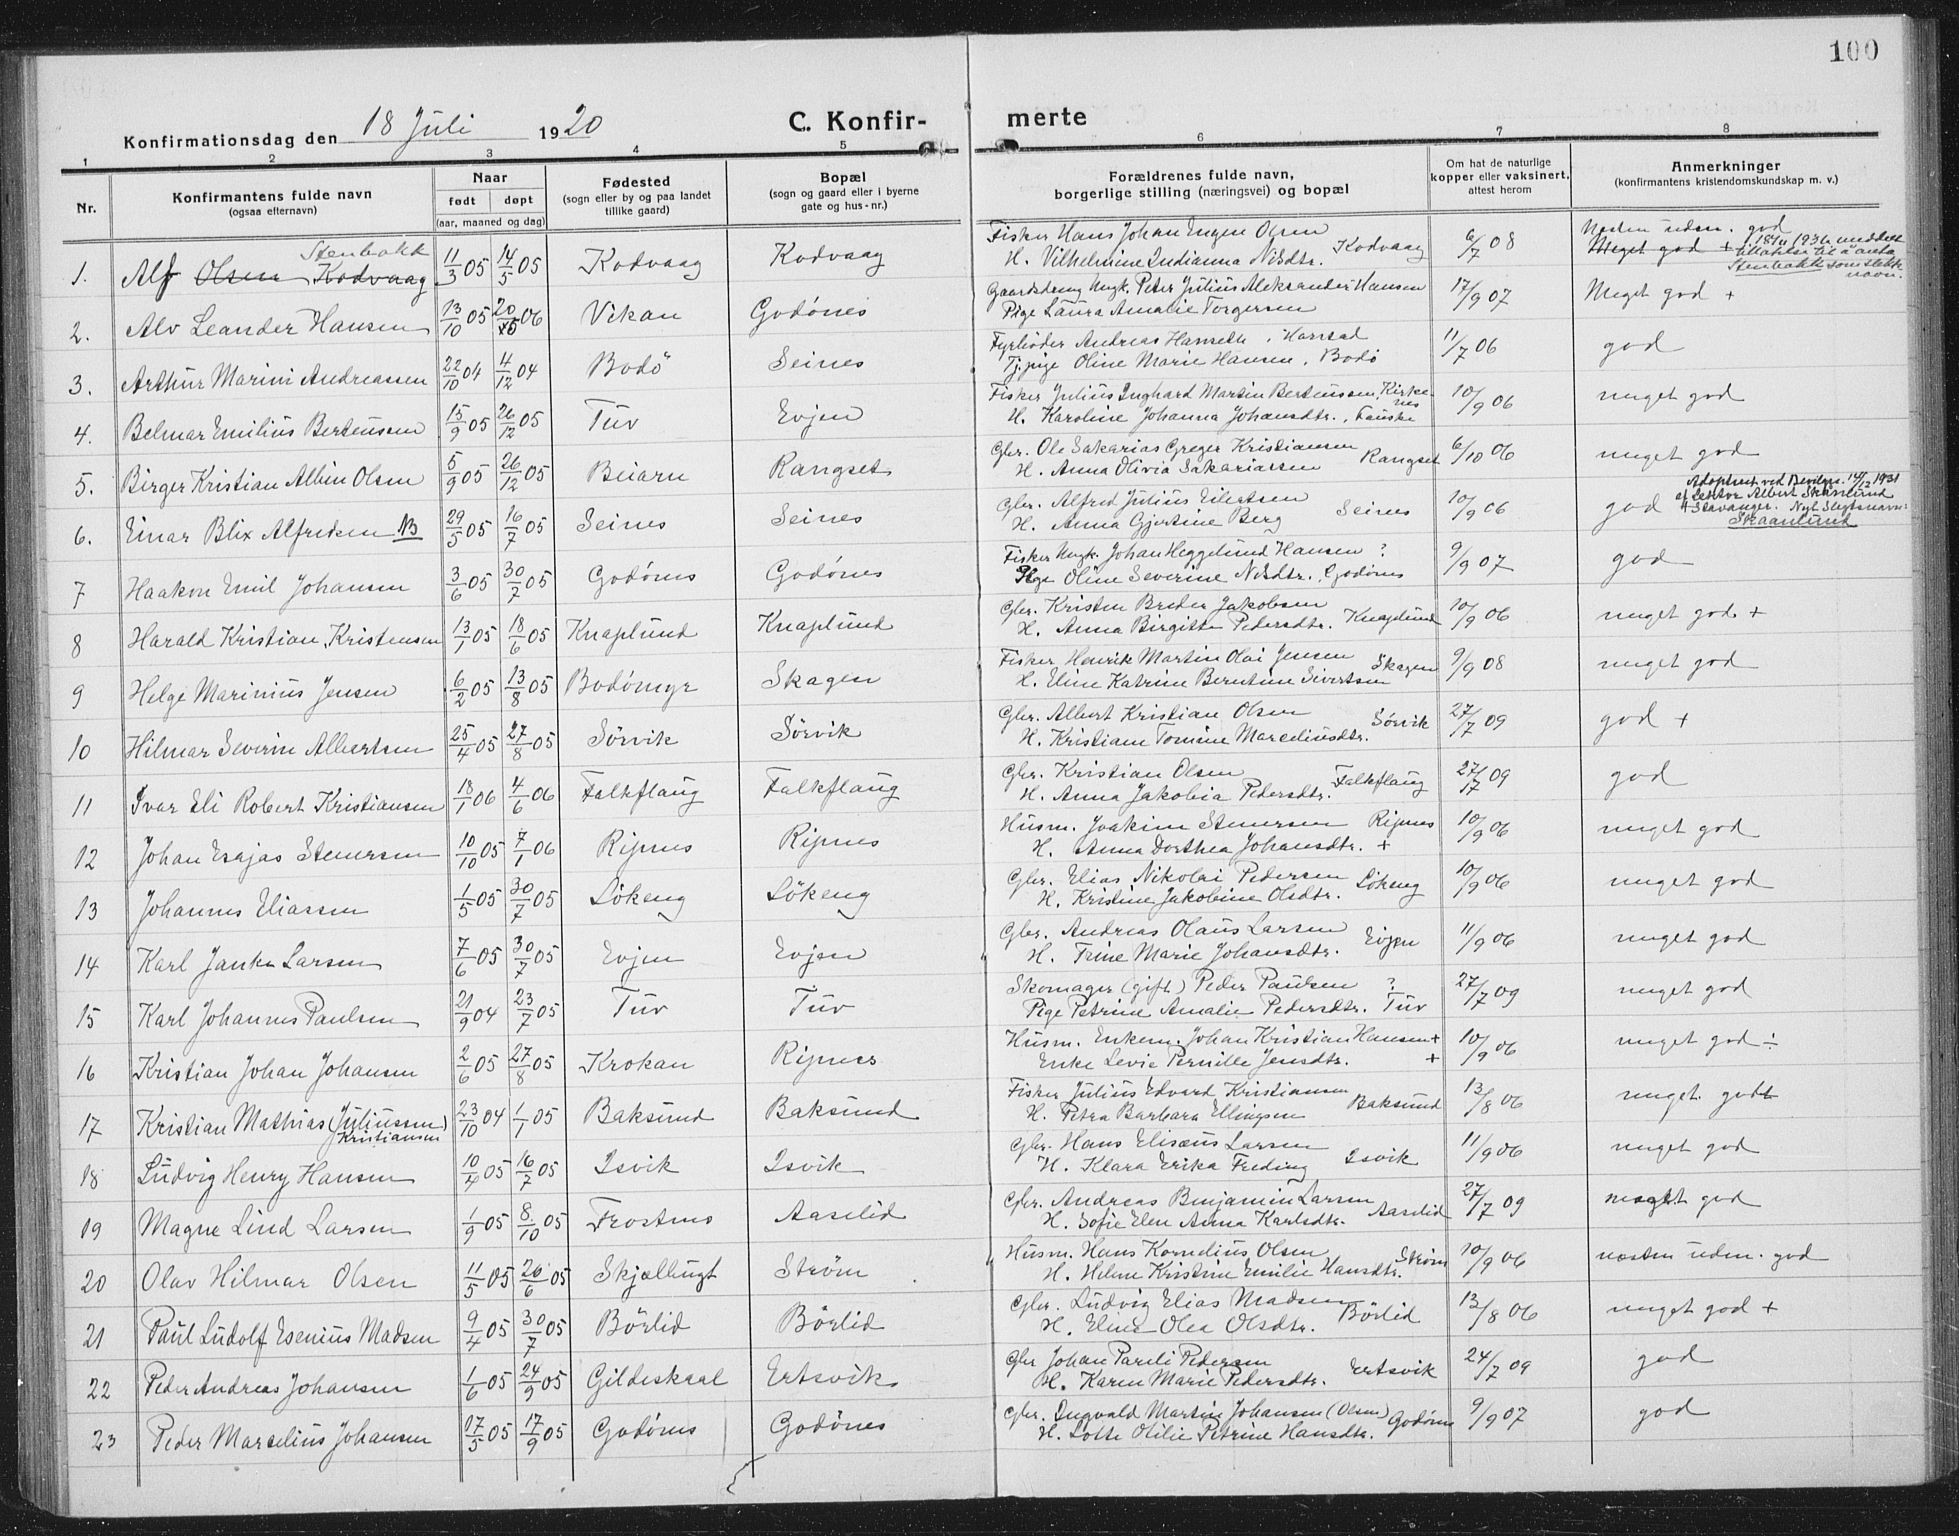 100
Konfirmationsdag den 18 Juli 1920 C. Konfir- merte
1 2 3 4 5 6 7 8
Nr. Konfirmantens fulde navn (ogsaa efternavn) Naar født døpt (aar, maaned og dag) Fødested (sogn eller by og paa landet tillike gaard) Bopæl (sogn og gaard eller i byerne gate og hus-nr.) Forældrenes fulde navn, borgerlige stilling (næringsvei) og bopæl Om hat de naturlige kopper eller vaksinert, attest herom Anmerkninger (konfirmantens kristendomskundskap m. v.)
Stenbakk Fisker Hans Johan Eugen Olsen Næsten uden. god
1. Alf Olsen Kodvaag 11/3 05 14/5 05 Kodvaag Kodvaag H. Vilhelmine Indianna Nilsdtr. Kodvaag 6/7 08 Meget god + 1936 meddelt tillatelse til å anta Stenbakk som slektsnavn.
2. Alv Leander Hansen 13/10 05 20/5 06 Vikan Godønes Gaardsdreng Ungk. Peter Julius Aleksander Hansen 17/9 07 Meget god +
Pige Laura Amalie Torgersen
3. Arthur Marini Andreassen 22/10 04 4/12 04 Bodö Seines Fyrbøder Andreas Hanseth, Harstad 11/7 06 god
Tj.pige Oline Marie Hansen, Bodø
4. Belmar Emilius Berteussen 15/9 05 26/12 05 Tuv Evjen Fisker Julius Inghard Martin Berteussen, Kirkenes 10/9 06 meget god
H. Karoline Johanna Johansdtr., Fauske
5. Birger Kristian Albin Olsen 5/9 05 26/12 05 Beiarn Rangset Gbr. Ole Sakarias Greger Kristiansen Rangset 6/10 06 meget god
H. Anna Olivia Sakariassen
6. Einar Blix Alfredsen NB 29/5 05 16/7 05 Seines Seines Gbr. Alfred Julius Eilertsen Seines 10/9 06 god Adoptert ved Bevilgn. 14/12 1931 af Lektor Albert Skaanlund Stavanger. Nyt Slegtsnavn: Skaanlund
H. Anna Gjertine Berg
7 Haakon Emil Johansen 3/6 05 30/7 05 Godønes Godónes Fisker Ungk. Johan Heggelund Hansen ? 9/9 07 god
Pige Oline Severine Nilsdtr., Godønes
8 Harald Kristian Kristensen 13/1 05 18/6 05 Knaplund Knaplund Gbr. Kristen Breder Jakobsen Knaplund 10/9 06 meget god +
H. Anna Birgitte Pedersdtr.
9 Helge Marinius Jensen 6/2 05 13/8 05 Bodømyr Skagen Fisker Henrik Martin Olai Jensen Skagen 9/9 08 meget god
H. Eline Katrine Berntine Sivertsen
10 Hilmar Severin Albertsen 25/4 05 27/8 05 Sörvik Sörvik Gbr. Albert Kristian Olsen Sörvik 27/7 09 god +
H. Kristiane Tomine Marceliusdtr.
11 Ivar Eli Robert Kristiansen 18/1 06 4/6 06 Falkflaug Falkflaug Gbr. Kristian Olsen Falkflaug 27/7 09 god
H. Anna Jakobia Pedersdtr.
12 Johan Esajas Stenersen 10/10 05 7/1 06 Ripnes Ripnes Husm. Joakim Stenersen Ripnes 10/9 06 meget god
H. Anna Dorthea Johansdtr. +
13 Johannes Eliassen 1/5 05 30/7 05 Lökeng Lökeng Gbr. Elias Nikolai Pedersen Lökeng 10/9 06 meget god
H. Kristine Jakobine Olsdtr.
14 Karl Janke Larsen 7/6 05 30/7 05 Evjen Evjen Gbr. Andreas Olaus Larsen Evjen 11/9 06 meget god
H. Trine Marie Johansdtr.
15 Karl Johannes Paulsen 21/9 04 23/7 05 Tuv Tuv Skomager (gift) Peder Paulsen ? 27/7 09 meget god
Pige Petrine Amalie Pedersdtr. Tuv
16 Kristian Johan Johansen 2/6 05 27/8 05 Krokan Ripnes Husm. Enkem. Johan Kristian Hansen + 10/9 06 meget god ÷
Enke Levie Pernille Jensdtr. +
17 Kristian Mathias (Juliussen) Kristiansen 23/10 04 1/1 05 Baksund Baksund Fisker Julius Edvard Kristiansen Baksund 13/8 06 meget god +
H. Petra Barbara Ellingsen
18 Ludvig Henry Hansen 10/4 05 16/7 05 Isvik Isvik Gbr. Hans Elisæus Larsen Isvik 11/9 06 meget god
H. Klara Erika Freding
19 Magne Lind Larsen 1/9 05 8/10 05 Frostmo Aaselid Gbr. Andreas Benjamin Larsen Aaselid 27/7 09 meget god
H. Sofie Elen Anna Karlsdtr.
20 Olav Hilmar Olsen 11/5 05 26/6 05 Skjælbugt Ström Husm. Hans Kornelius Olsen Ström 10/9 06 næsten uden. god
H. Helene Kristine Emilie Hansdtr.
21 Paul Ludolf Esenius Madsen 9/4 05 30/7 05 Börlid Börlid Gbr. Ludvig Elias Madsen Börlid 13/8 06 meget god +
H. Eline Olea Olsdtr.
22 Peder Andreas Johansen 1/6 05 24/9 05 Gildeskaal Ertsvik Gbr Johan Pareli Pedersen Ertsvik 24/7 09 god
H. Karen Marie Pedersdtr.
23 Peder Marselius Johansen 17/5 05 17/9 05 Godönes Godönes Gbr. Ingvald Martin Johansen (Olsen) Godönes 9/9 07 god
H. Lotte Otilie Petrine Hansdtr.